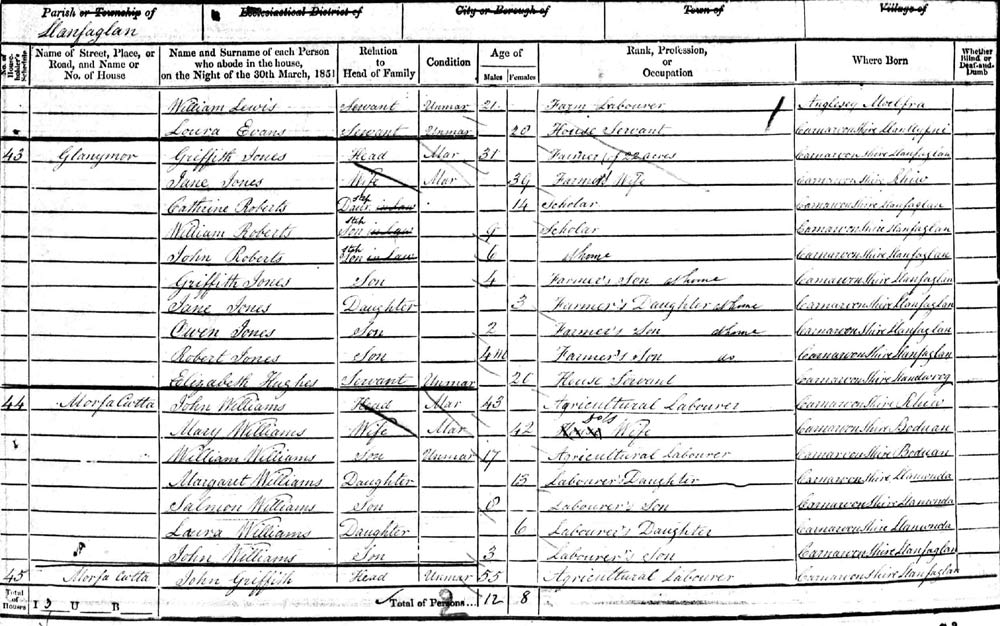 Parish or Township of Ecclesiastical District of City or Borough of Town of Village of
Llanfaglan
No. of Householder's Schedule Name of Street, Place, or Road, and Name or No. of House Name and Surname of each Person who abode in the house, on the Night of the 30th March, 1851 Relation to Head of Family Condition Age of Males Females Rank, Profession, or Occupation Where Born Whether Blind or Deaf-and-Dumb
William Lewis Servant Unmar 21 Farm Labourer Anglesey Moelfra
Loura Evans Servant Unmar 20 House Servant Carnarvonshire Llanllyfni
43 Glanymor Griffith Jones Head Mar 31 Farmer of 22 acres Carnarvonshire Llanfaglan
Jane Jones Wife Mar 39 Farmer's Wife Carnarvonshire Rhiw
Cathrine Roberts step Daur in law 14 Scholar Carnarvonshire Llanfaglan
William Roberts step Son in law 9 Scholar Carnarvonshire Llanfaglan
John Roberts step Son in law 6 at home Carnarvonshire Llanfaglan
Griffith Jones Son 4 Farmer's Son at home Carnarvonshire Llanfaglan
Jane Jones Daughter 3 Farmer's Daughter at home Carnarvonshire Llanfaglan
Owen Jones Son 2 Farmer's Son at home Carnarvonshire Llanfaglan
Robert Jones Son 4 m Farmer's Son do Carnarvonshire Llanfaglan
Elizabeth Hughes Servant Unmar 20 House Servant Carnarvonshire Llandwrog
44 Morfa Cwtta John Williams Head Mar 43 Agricultural Labourer Carnarvonshire Rhiw
Mary Williams Wife Mar 42 Wife Carnarvonshire Boduan
William Williams Son Unmar 17 Agricultural Labourer Carnarvonshire Boduan
Margaret Williams Daughter 13 Labourer's Daughter Carnarvonshire Llanwnda
Salmon Williams Son 8 Labourer's Son Carnarvonshire Llanwnda
Loura Williams Daughter 6 Labourer's Daughter Carnarvonshire Llanwnda
John Williams Son 3 Labourer's Son Carnarvonshire Llanfaglan
45 Morfa Cwtta John Griffith Head Unmar 55 Agricultural Labourer Carnarvonshire Llanfaglan
Total of Houses I 3 U B Total of Persons... 12 8
2